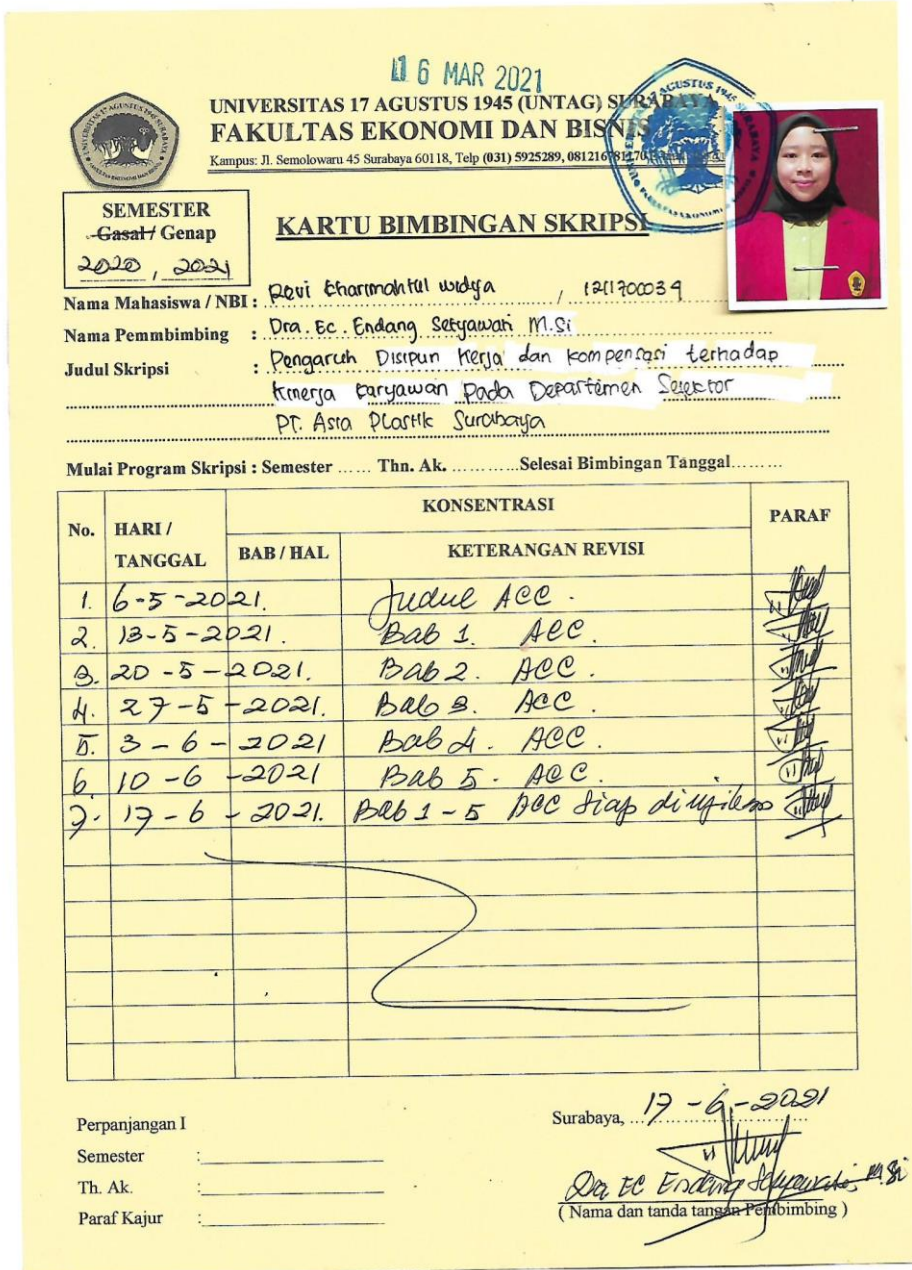 16 MAR 2021
UNIVERSITAS 17 AGUSTUS 1945 (UNTAG) SURABAYA
FAKULTAS EKONOMI DAN BISNIS
Kampus: Jl. Semolowaru 45 Surabaya 60118, Telp (031) 5925289, 081216781170
SEMESTER
Gasal / Genap
2020, 2021
KARTU BIMBINGAN SKRIPSI
Nama Mahasiswa / NBI : Revi Kharimahtul Widya / 1211700039
Nama Pemmbimbing : Dra. Ec. Endang Setyawati M.Si
Judul Skripsi : Pengaruh Disiplin Kerja dan Kompensasi terhadap
Kinerja Karyawan Pada Departemen Selektor
PT. Asia Plastik Surabaya
Mulai Program Skripsi : Semester ...... Thn. Ak. ............Selesai Bimbingan Tanggal.........
No. HARI / TANGGAL KONSENTRASI PARAF
BAB / HAL KETERANGAN REVISI
1. 6-5-2021. Judul ACC.
2. 13-5-2021. Bab 1. ACC.
3. 20-5-2021. Bab 2. ACC.
4. 27-5-2021. Bab 3. ACC.
5. 3-6-2021 Bab 4. ACC.
6. 10-6-2021 Bab 5. ACC.
7. 17-6-2021. Bab 1-5 ACC Siap diujikan
Perpanjangan I
Surabaya, 17-6-2021
Semester :
Th. Ak. :
Paraf Kajur :
Dra EC Endang Setyawati M.Si
( Nama dan tanda tangan Pembimbing )